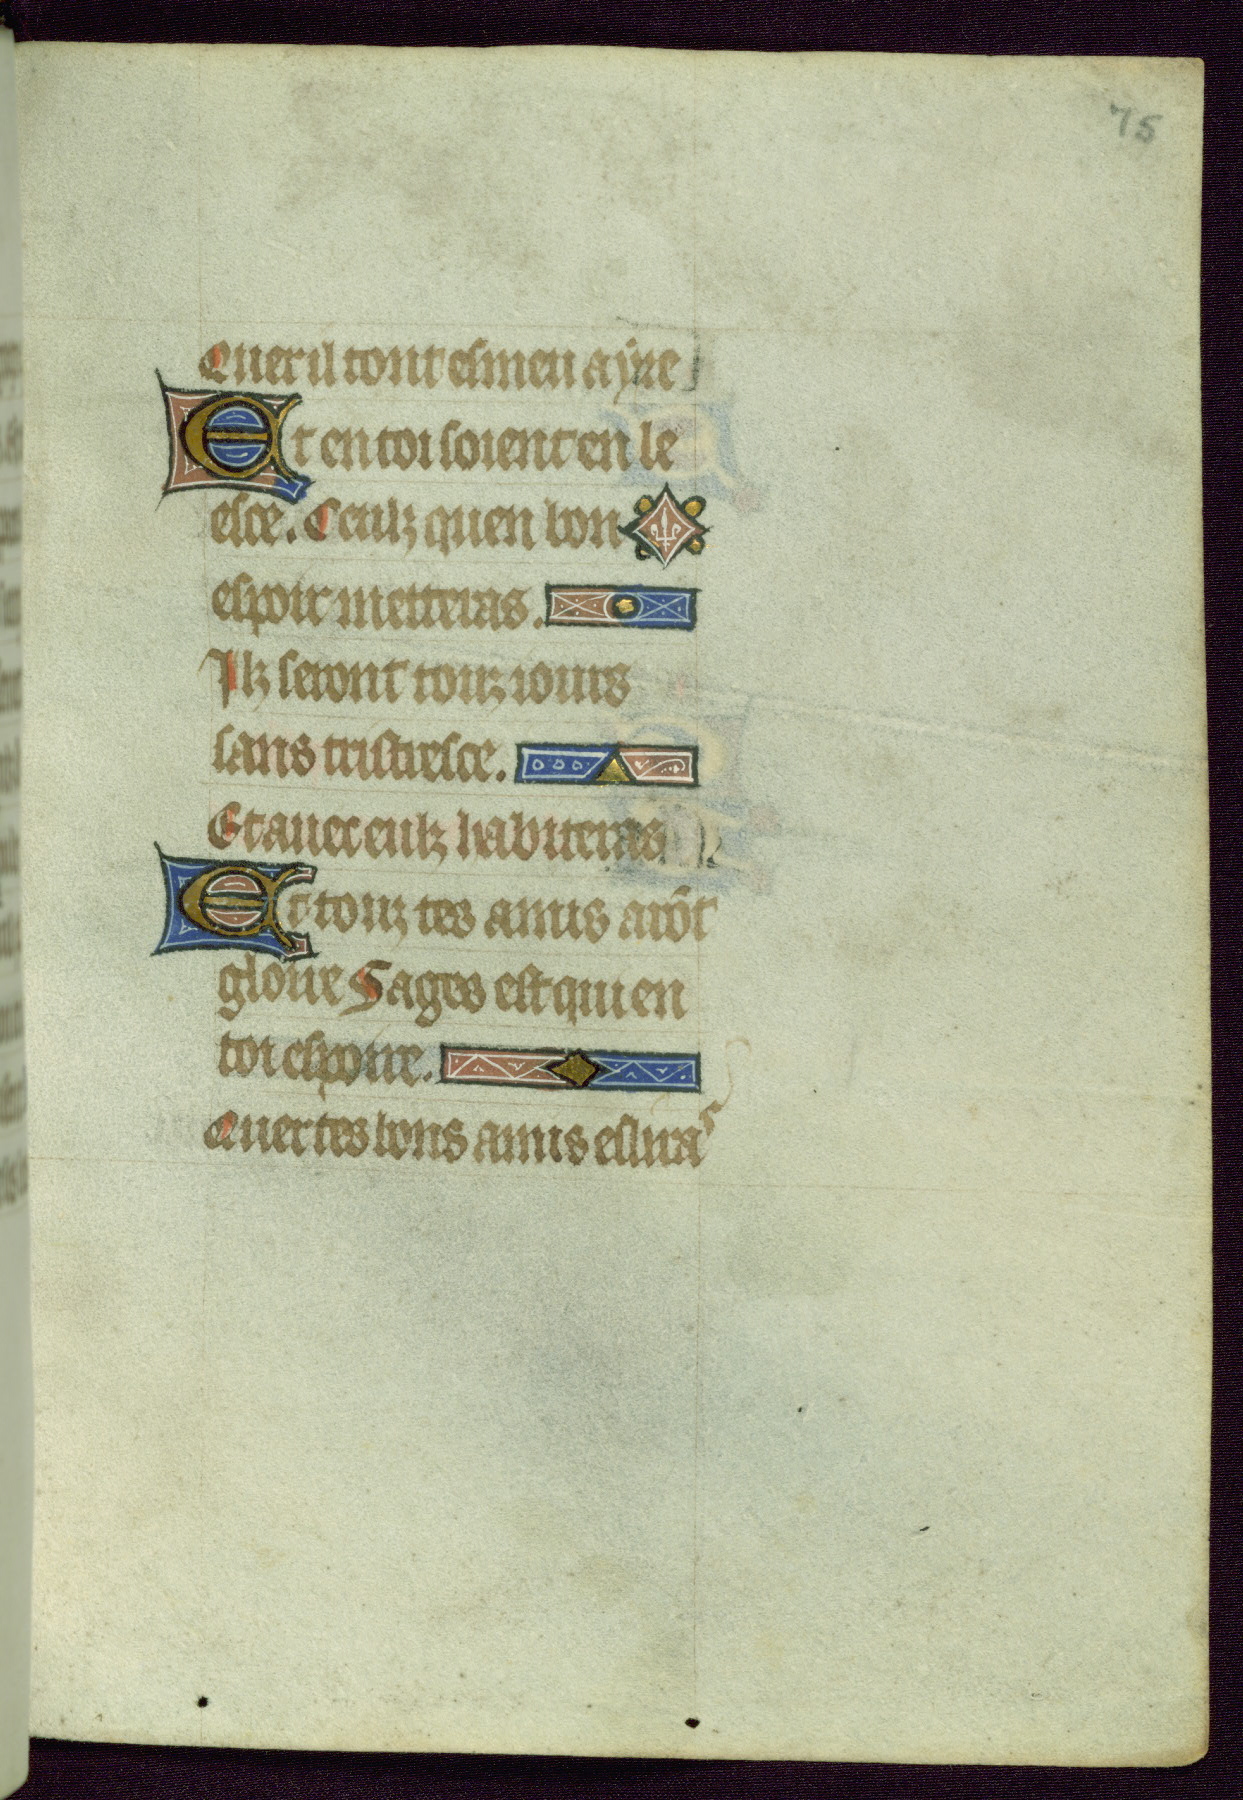 75
Quer il tont esmeu a yre
Et en toi soient en le
esce. Ceulz qu en bon
espoir metteras.
Ilz seront touz iours
sans tristresce.
Et auec eulz habiteras
Et touz tes amis arõt
gloire Sages est qui en
toi espoire.
Quer tes bons amis eslira